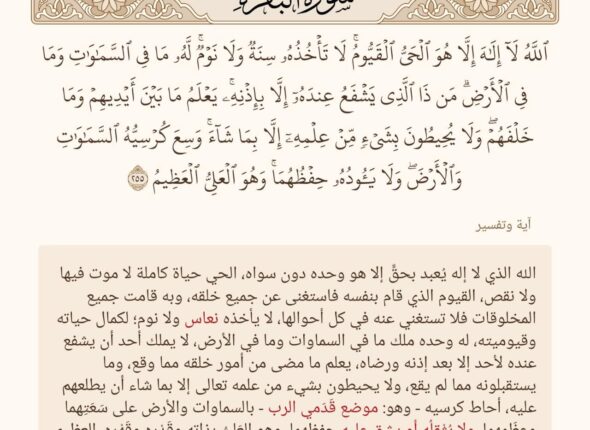 سورة البقرة
اللَّهُ لَآ إِلَٰهَ إِلَّا هُوَ الْحَيُّ الْقَيُّومُ ۚ لَا تَأْخُذُهُۥ سِنَةٌ وَلَا نَوْمٌ ۚ لَّهُۥ مَا فِي السَّمَاوَاتِ وَمَا
فِي الْأَرْضِ ۗ مَن ذَا الَّذِي يَشْفَعُ عِندَهُۥٓ إِلَّا بِإِذْنِهِۦ ۚ يَعْلَمُ مَا بَيْنَ أَيْدِيهِمْ وَمَا
خَلْفَهُمْ ۖ وَلَا يُحِيطُونَ بِشَيْءٍ مِّنْ عِلْمِهِۦٓ إِلَّا بِمَا شَآءَ ۚ وَسِعَ كُرْسِيُّهُ السَّمَاوَاتِ
وَالْأَرْضَ ۖ وَلَا يَـُٔودُهُۥ حِفْظُهُمَا ۚ وَهُوَ الْعَلِيُّ الْعَظِيمُ ٢٥٥
آية وتفسير
الله الذي لا إله يُعبد بحقٍّ إلا هو وحده دون سواه، الحي حياة كاملة لا موت فيها
ولا نقص، القيوم الذي قام بنفسه فاستغنى عن جميع خلقه، وبه قامت جميع
المخلوقات فلا تستغني عنه في كل أحوالها، لا يأخذه نعاس ولا نوم؛ لكمال حياته
وقيوميته، له وحده ملك ما في السماوات وما في الأرض، لا يملك أحد أن يشفع
عنده لأحد إلا بعد إذنه ورضاه، يعلم ما مضى من أمور خلقه مما وقع، وما
يستقبلونه مما لم يقع، ولا يحيطون بشيء من علمه تعالى إلا بما شاء أن يطلعهم
عليه، أحاط كرسيه - وهو: موضع قَدَمي الرب - بالسماوات والأرض على سَعَتِهما